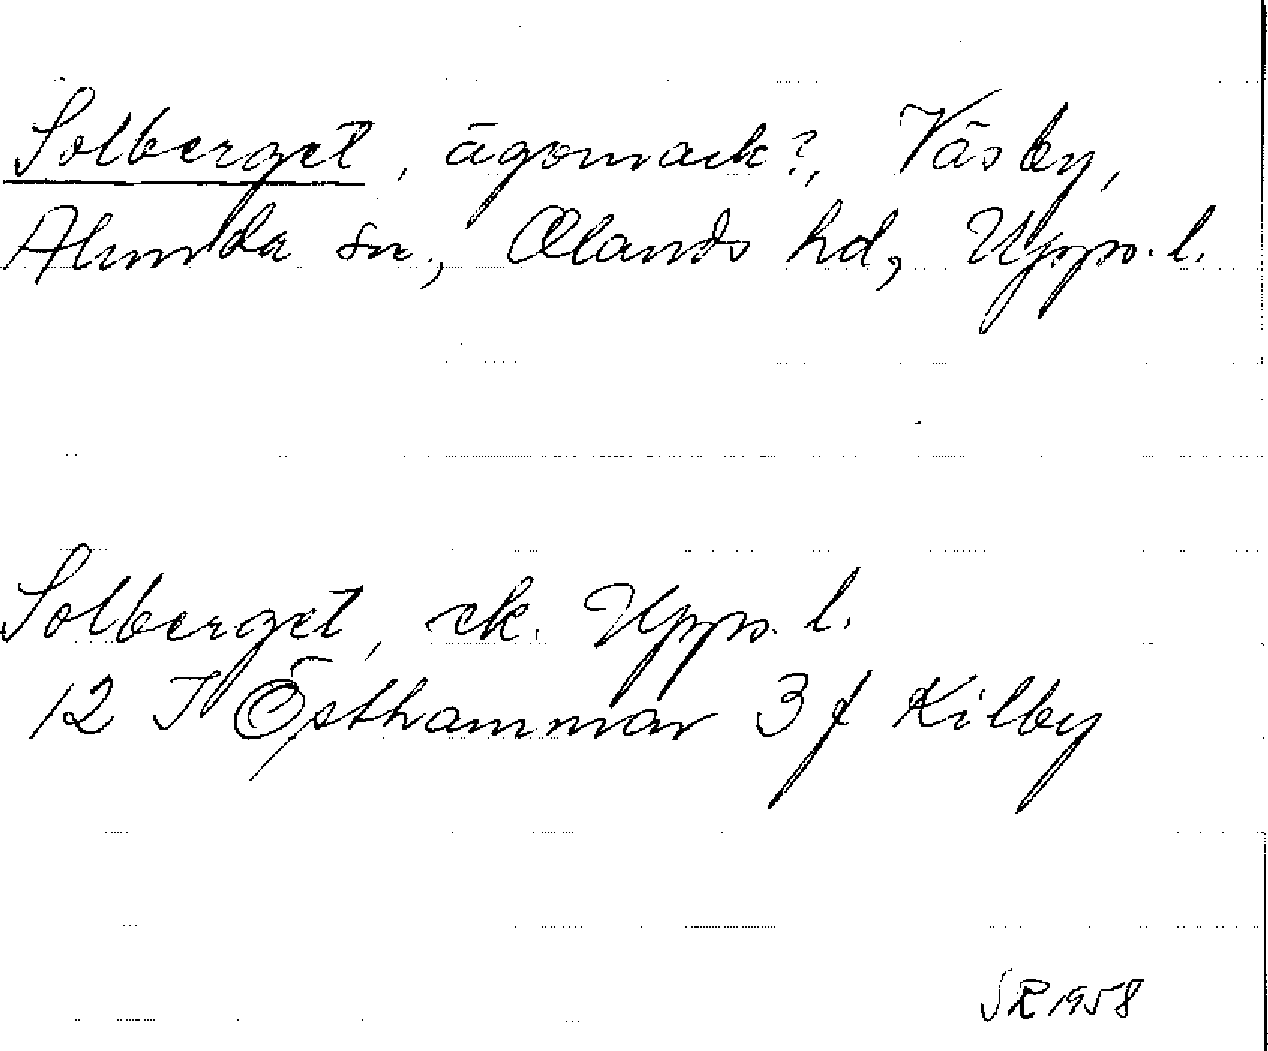 Solberget, ägomark?, Väsby,
Alunda sn, Olands hd, Upps. l.
Solberget, ek. Upps. l.
12 I Östhammar 3 f Kilby
SR 1958